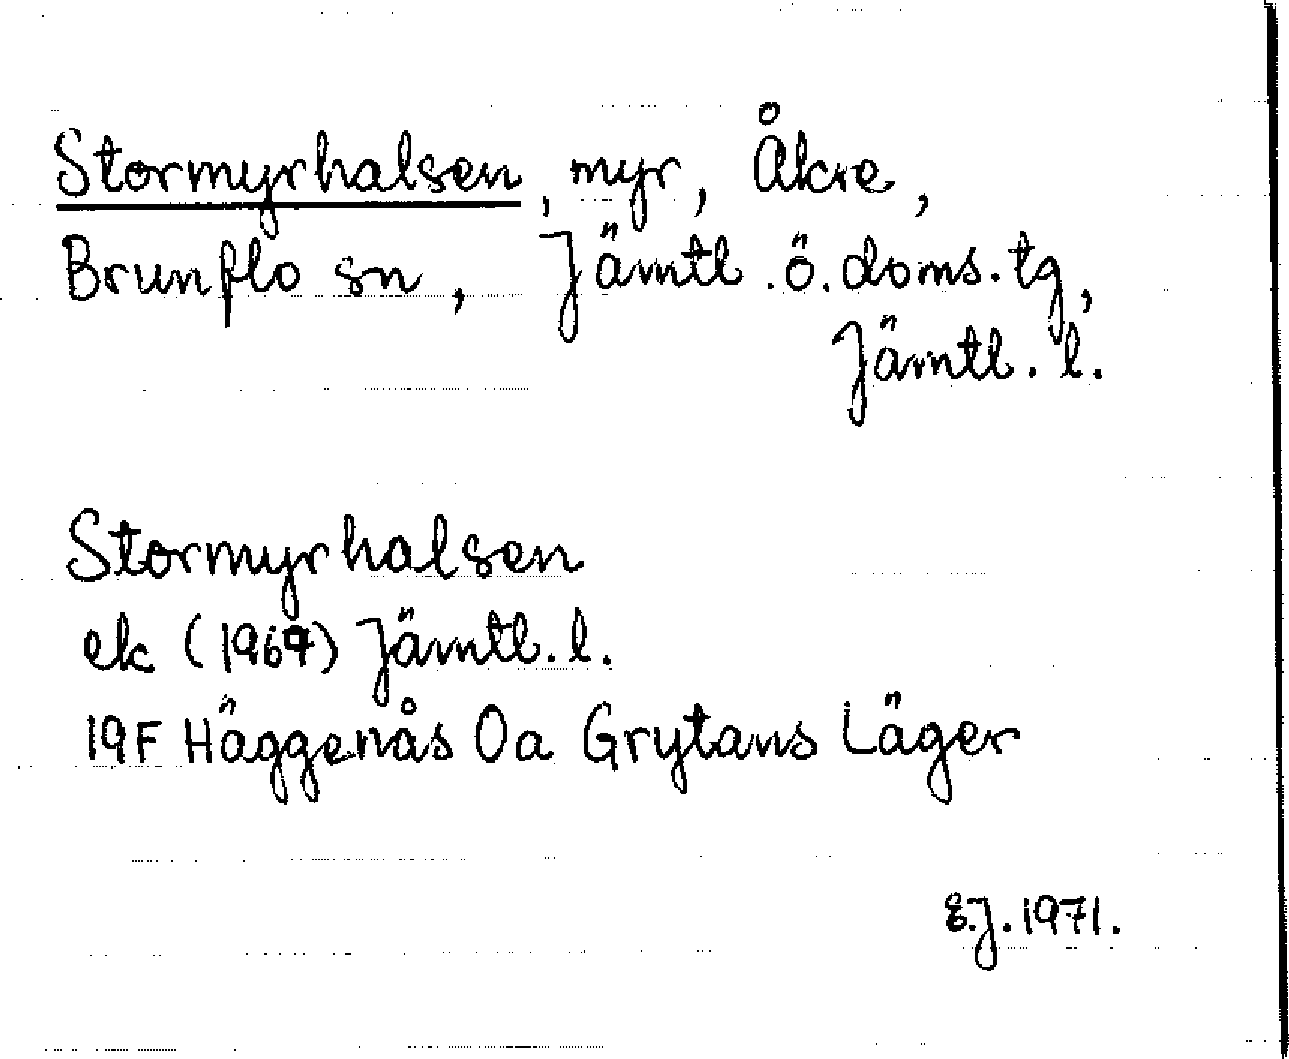 Stormyrhalsen, myr, Åkre,
Brunflo sn, Jämtl. ö. doms. tg,
Jämtl. l.
Stormyrhalsen
ek (1969) Jämtl. l.
19F Häggenås Oa Grytans Läger
E.J. 1971.